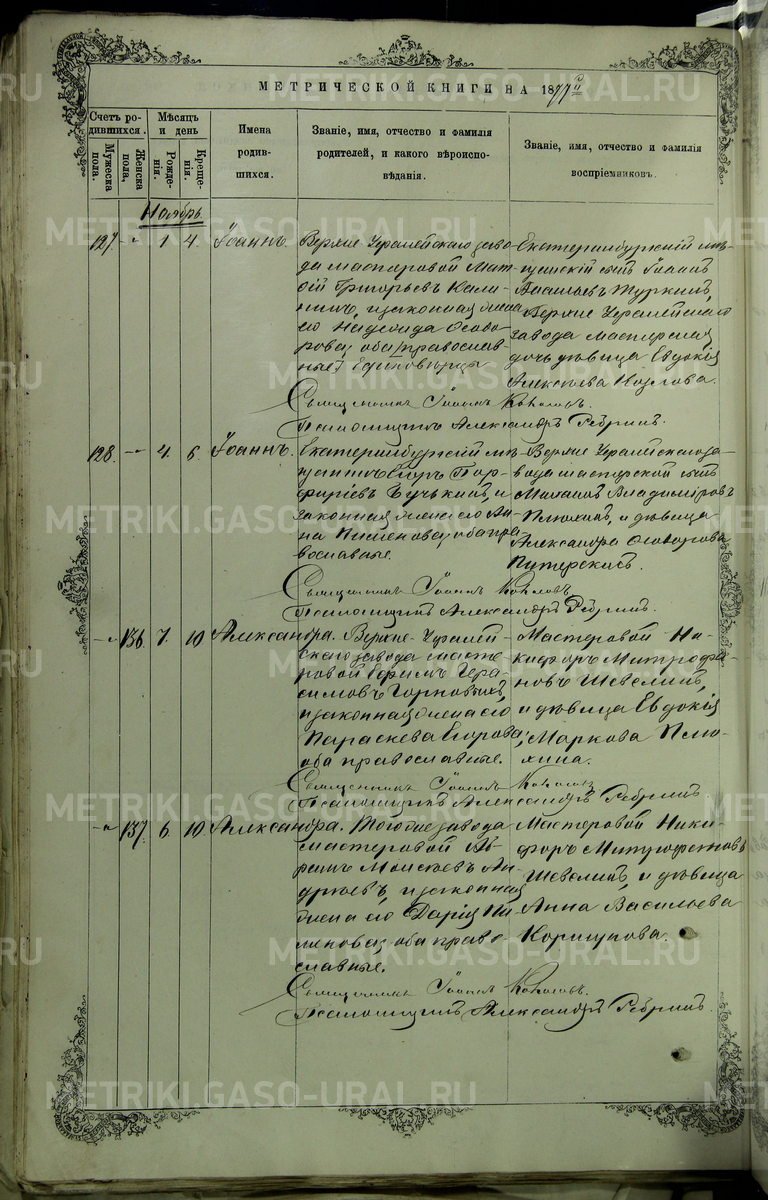 МЕТРИЧЕСКОЙ КНИГИ НА 1877й
Счетъ ро-
дившихся.
Мужеска
пола.
Женска
пола,
Мѣсяцъ
и день
Рожде-
нія.
Креще-
нія.
Имена
родив-
шихся.
Званіе, имя, отчество и фамилія
родителей, и какого вѣроиспо-
вѣданія.
Званіе, имя, отчество и фамилія
воспріемниковъ.
Ноябрь.
127. 1. 4. Іоаннъ.
Верхне-Уфалейскаго заво-
да мастеровой Мат-
ѳій Григорьевъ Кали-
нинъ, и законная жена
его Надежда
оба православ-
ные
Екатеринбургскій мѣ-
щанскій сынъ Іоаннъ
Васильевъ
Верхне-Уфалейскаго
завода мастерская
дочь дѣвица Евдокія
Алексѣева Козлова.
Священникъ Іоаннъ
Псаломщикъ Александръ Ребринъ.
128. 4. 6. Іоаннъ.
Екатеринбургскій мѣ-
щанинъ Егоръ Пор-
фиріевъ и
законная жена его Ан-
на Пименова, оба пра-
вославные.
Верхне-Уфалейскаго за-
вода мастерской сынъ
Михаилъ Владиміровъ
Плюхинъ, и дѣвица
Александра
Священникъ Іоаннъ
Псаломщикъ Александръ Ребринъ.
136. 7. 10. Александра.
Верхне-Уфалей-
скаго завода масте-
ровой Гера-
симовъ Горновыхъ,
и законная жена его
Параскева Егорова,
оба православные.
Мастеровой Ни-
кифоръ Митрофа-
новъ Шевелинъ,
и дѣвица Евдокія
Маркова Плю-
хина.
Священникъ Іоаннъ
Псаломщикъ Александръ Ребринъ.
137. 6. 10. Александра.
Того же завода
мастеровой Аб-
рамъ Моисеевъ Ан-
дреевъ, и законная
жена его Дарія Пи-
менова, оба право-
славные.
Мастеровой Ники-
форъ Митрофановъ
Шевелинъ, и дѣвица
Анна Васильева
Коршунова.
Священникъ Іоаннъ
Псаломщикъ Александръ Ребринъ.
METRIKI.GASO-URAL.RU